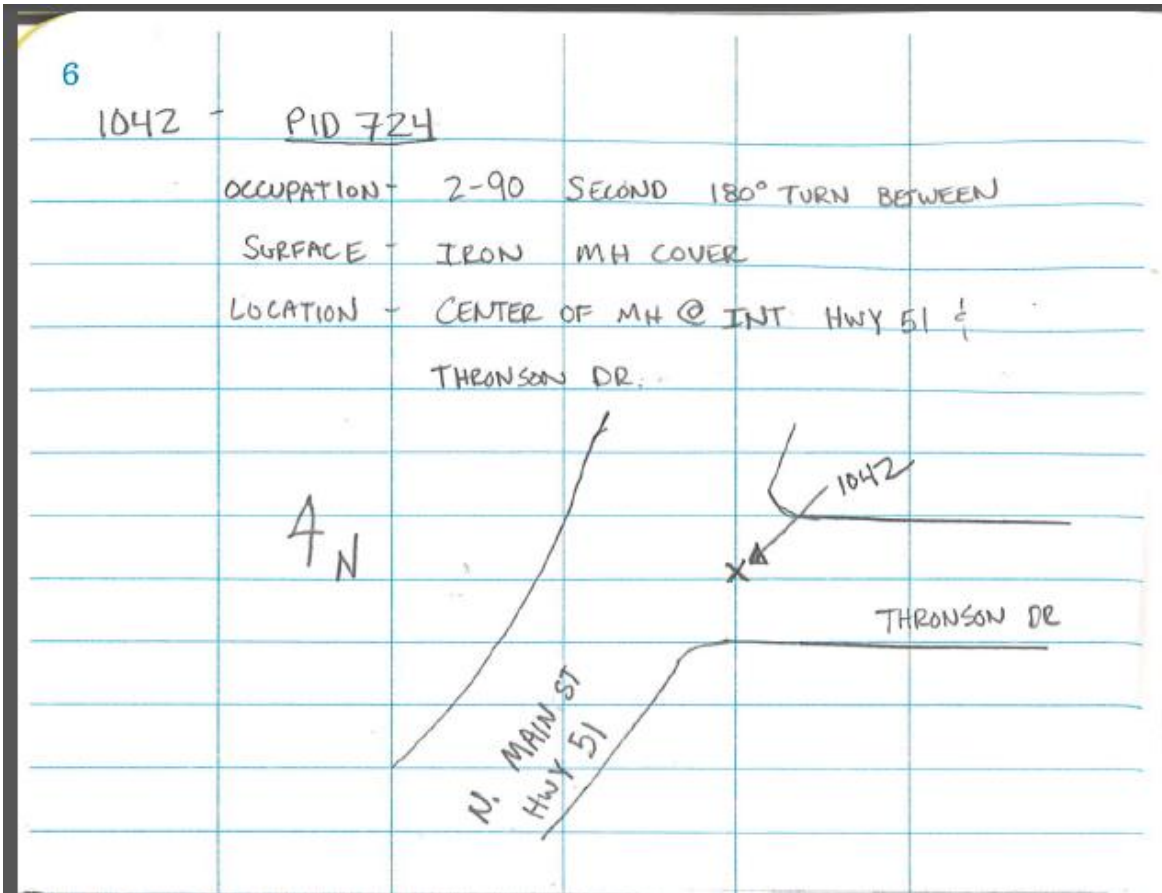 6
1042 - PID 724
OCCUPATION - 2-90 SECOND 180° TURN BETWEEN
SURFACE - IRON MH COVER
LOCATION - CENTER OF MH @ INT HWY 51 &
THRONSON DR.
1042
N
X
THRONSON DR
N. MAIN ST
HWY 51